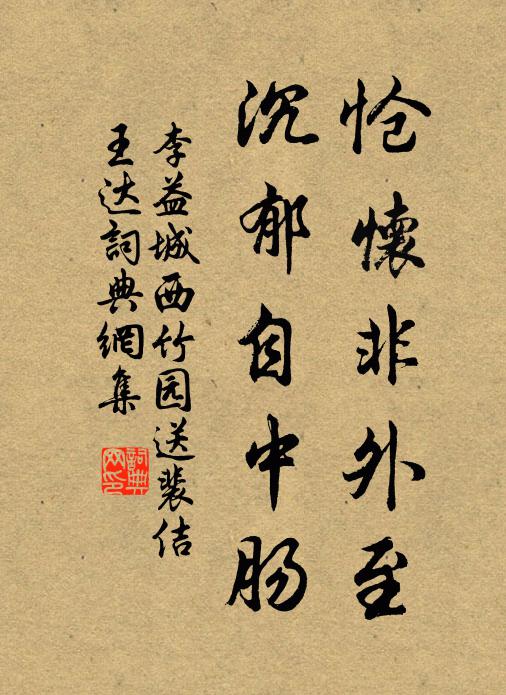 怆懷非外至
沉郁自中肠
李益城西竹园送裴佶
王达詞典網集
詞典网印